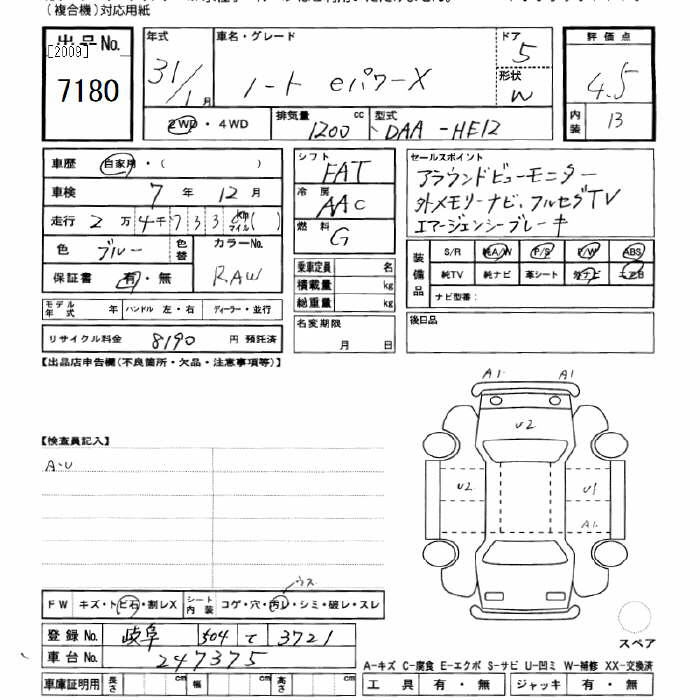 (複合機)対応用紙
出品No. [2009] 7180
年式 31/1月
車名・グレード ノート eパワーX
ドア 5
形状 W
評価点 4.5
内装 B
2WD・4WD
排気量 1200 cc
型式 DAA-HE12
車歴 自家用・( )
車検 7年 12月
走行 2万4千733 km マイル( )
色 ブルー 色替 カラーNo. RAW
保証書 有・無
モデル年式 年 ハンドル 左・右 ディーラー・並行
リサイクル料金 8190 円 預託済
シフト FAT
冷房 AAC
燃料 G
乗車定員 名
積載量 kg
総重量 kg
名変期限 月 日
セールスポイント
アラウンドビューモニター
外メモリーナビ、フルセグTV
エマージェンシーブレーキ
装備品 S/R 純A/W P/S P/W ABS
純TV 純ナビ 革シート 外ナビ エアB
ナビ型番:
後日品
【出品店申告欄(不良箇所・欠品・注意事項等)】
【検査員記入】
A・U
A1 A1
U2
U2 U1
A1
スペア
FW キズ・トビ石・割レX シート内装 コゲ・穴・汚レ・シミ・破レ・スレ
ウス
登録No. 岐阜 504 て 3721
車台No. 247375
車庫証明用 長さ cm 幅 cm 高さ cm
A-キズ C-腐食 E-エクボ S-サビ U-凹ミ W-補修 XX-交換済
工具 有・無 ジャッキ 有・無